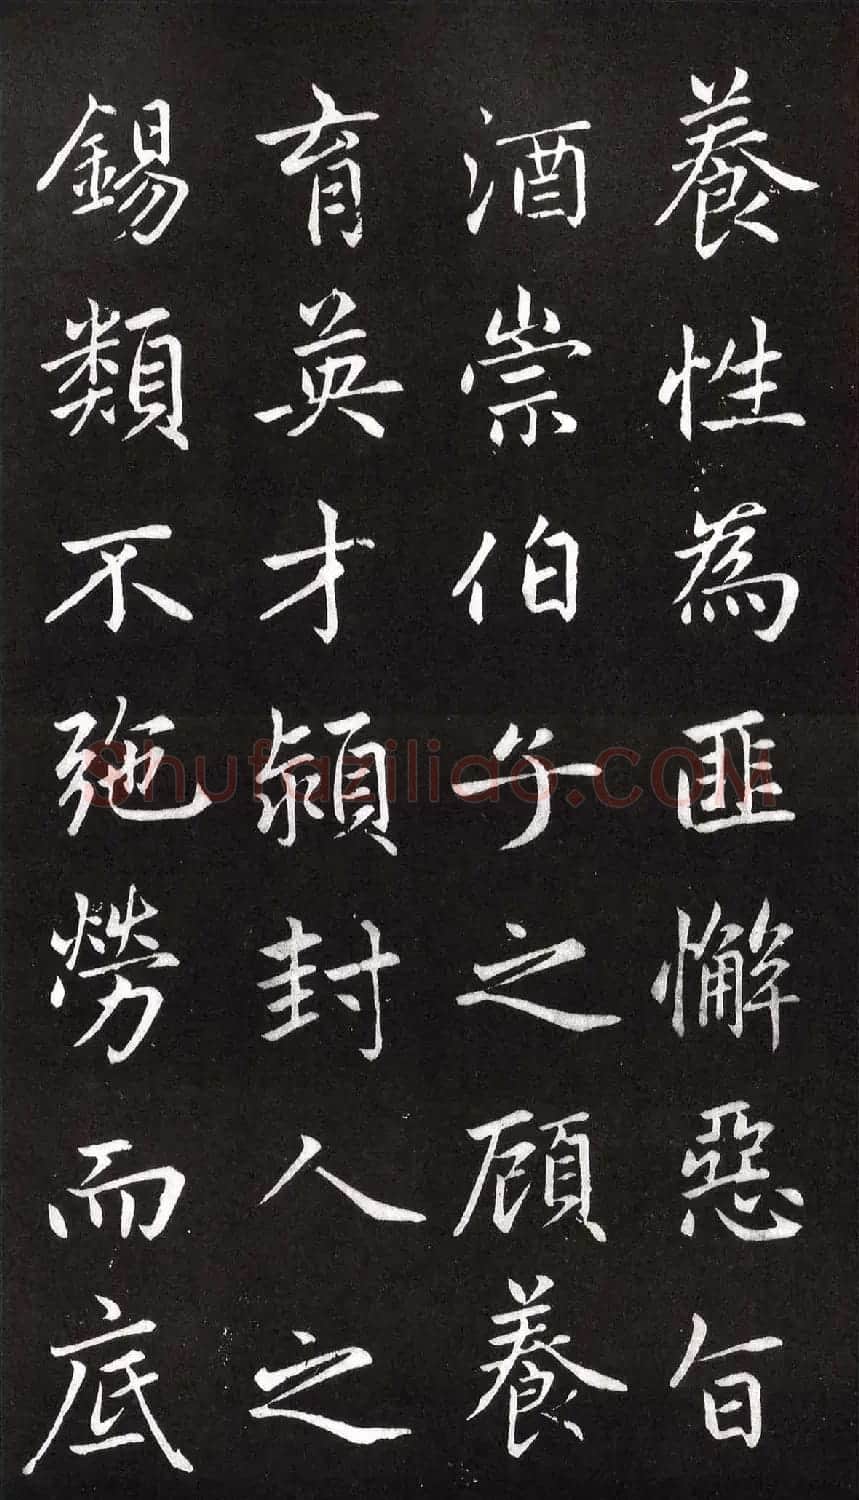 養性為匪懈惡旨
酒崇伯子之顧養
育英才頴封人之
錫類不弛勞而底
Shufaziliao.COM